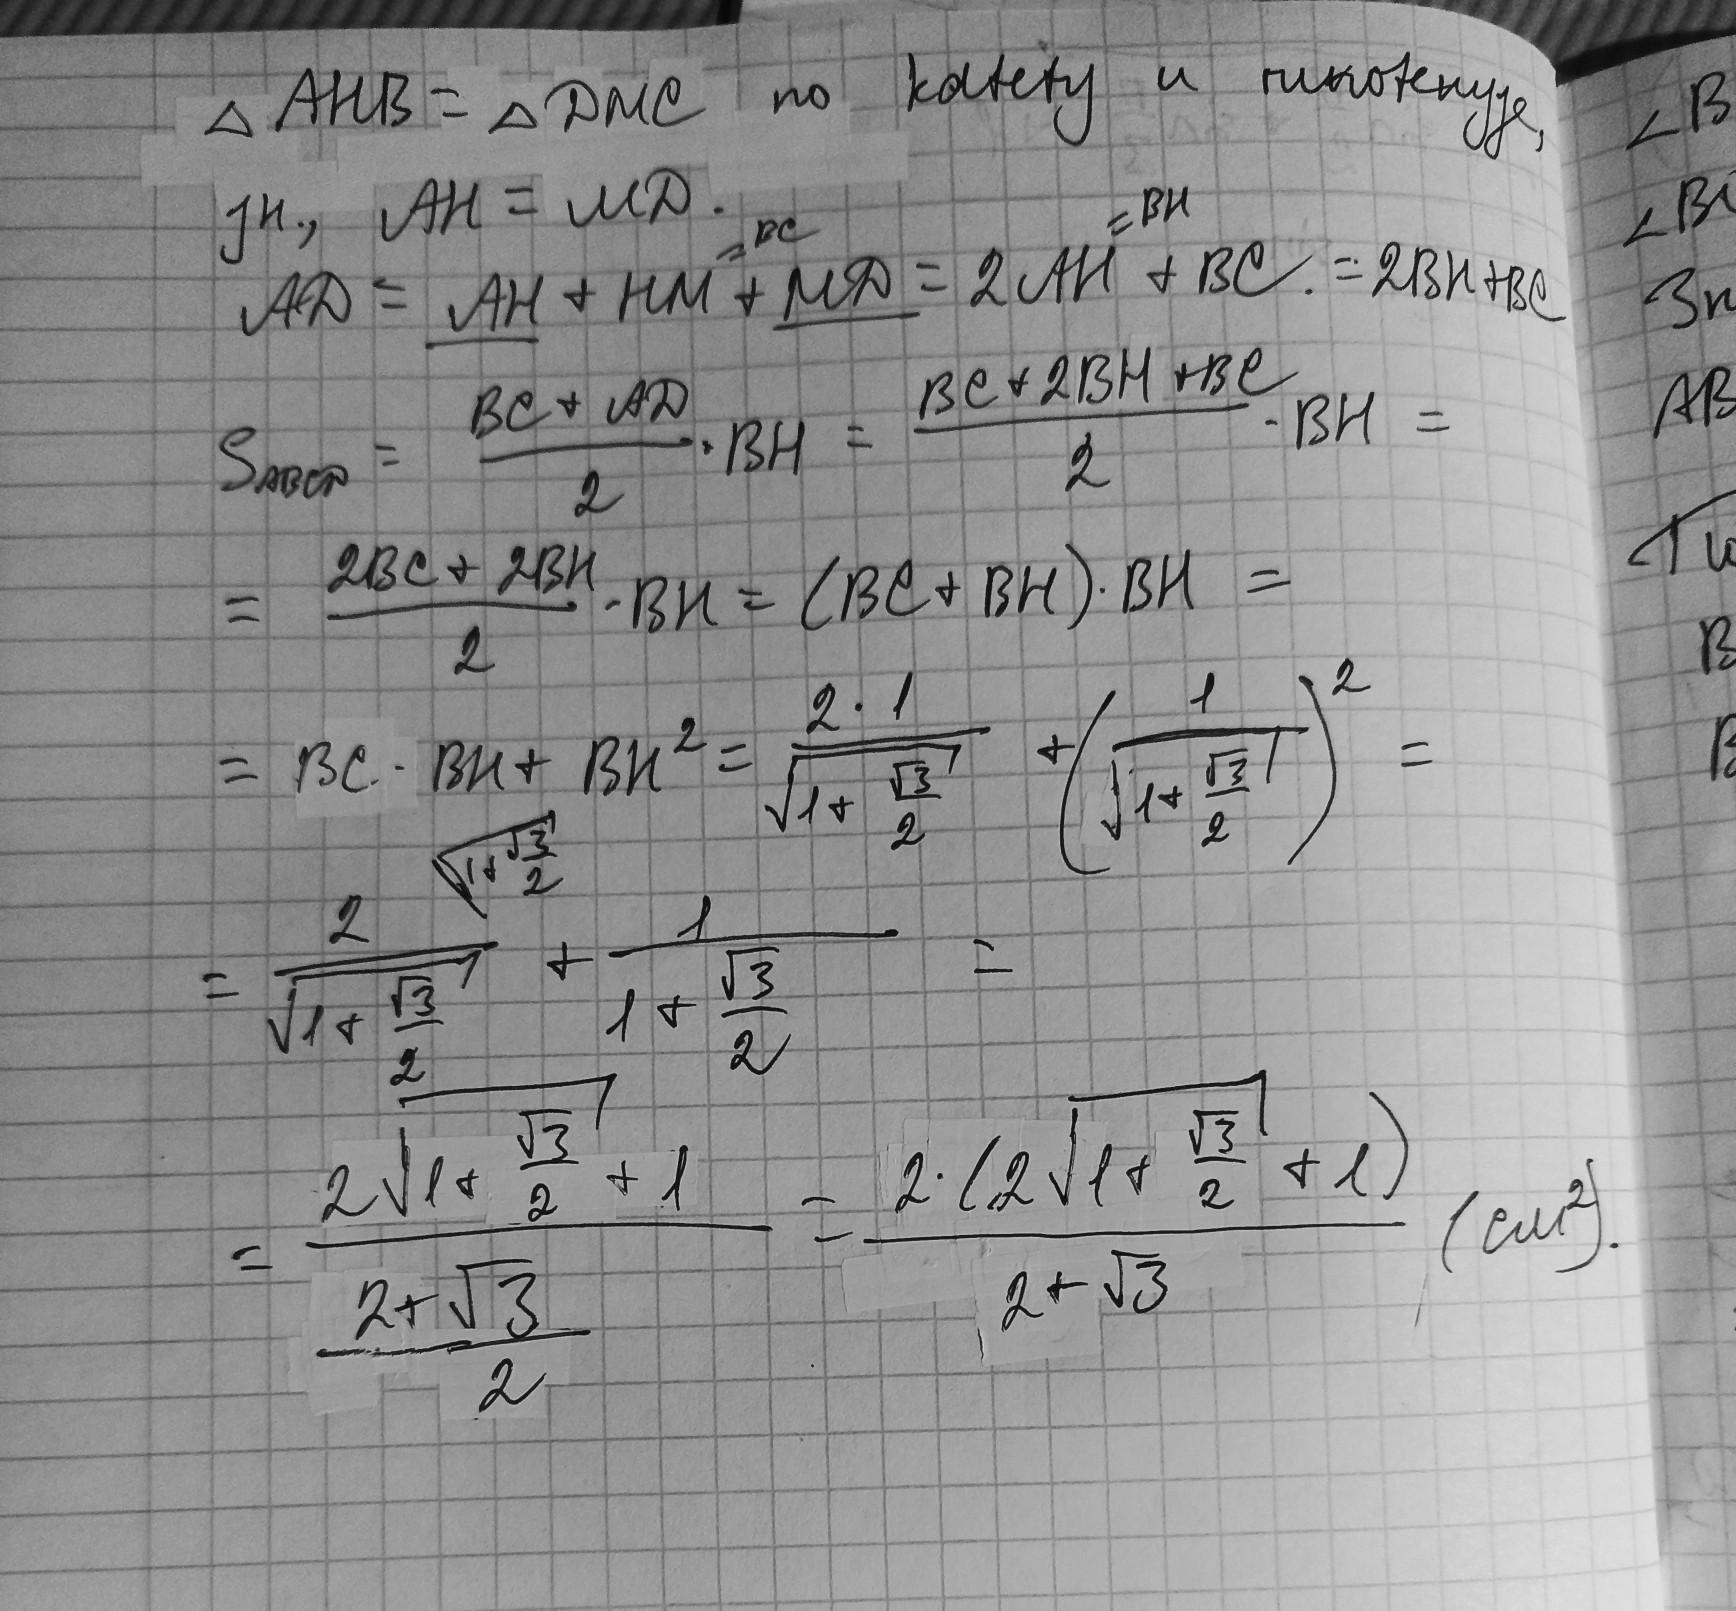 △ AHB = △ DMC по катету и гипотенузе,
зн., AH = MD.
AD = AH + HM^{=BC} + MD = 2AH^{=BH} + BC. = 2BH + BC
S_{ABCD} = \frac{BC + AD}{2} · BH = \frac{BC + 2BH + BC}{2} · BH =
= \frac{2BC + 2BH}{2} · BH = (BC + BH) · BH =
= BC · BH + BH^2 = \frac{2 · 1}{\sqrt{1 + \frac{\sqrt{3}}{2}}} + \left(\frac{1}{\sqrt{1 + \frac{\sqrt{3}}{2}}}\right)^2 =
\sqrt{1 + \frac{\sqrt{3}}{2}}
= \frac{2}{\sqrt{1 + \frac{\sqrt{3}}{2}}} + \frac{1}{1 + \frac{\sqrt{3}}{2}} =
= \frac{2\sqrt{1 + \frac{\sqrt{3}}{2}} + 1}{\frac{2 + \sqrt{3}}{2}} = \frac{2 · (2\sqrt{1 + \frac{\sqrt{3}}{2}} + 1)}{2 + \sqrt{3}} (см^2).
∠B
Зн
AB
B